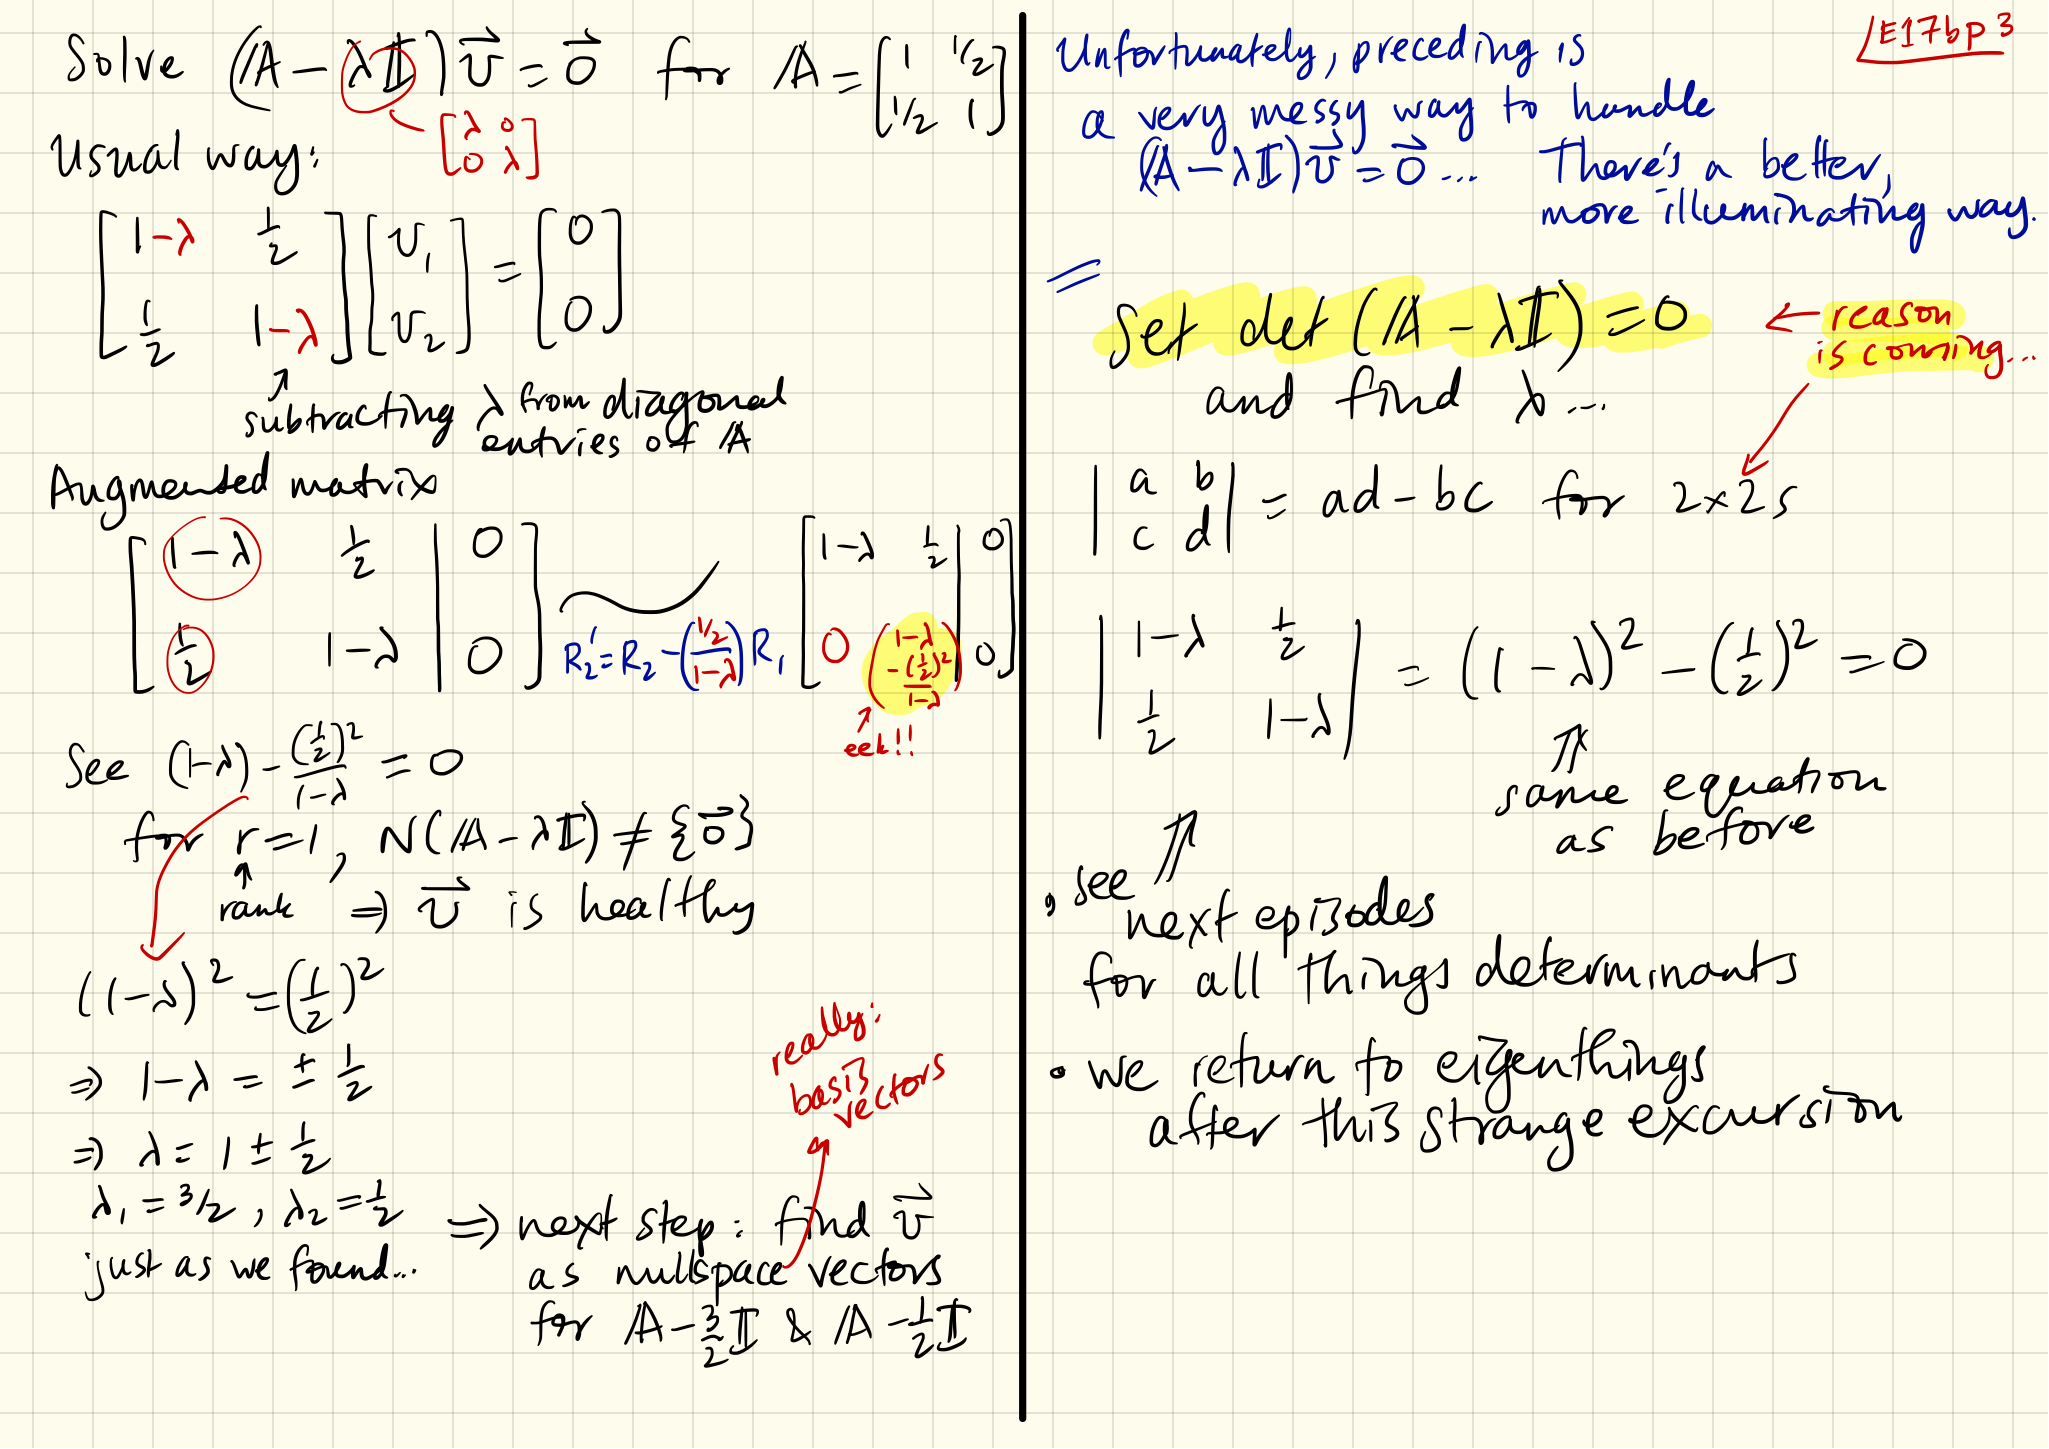 Solve (A - λI) v⃗ = 0⃗ for A = [1 1/2; 1/2 1]
[λ 0; 0 λ]
Usual way:
[1-λ 1/2; 1/2 1-λ] [v₁; v₂] = [0; 0]
subtracting λ from diagonal
entries of A
Augmented matrix
[1-λ 1/2 | 0; 1/2 1-λ | 0] R₂' = R₂ - ((1/2)/(1-λ)) R₁ [1-λ 1/2 | 0; 0 (1-λ - (1/2)²/(1-λ)) | 0]
eek!!
See (1-λ) - (1/2)²/(1-λ) = 0
for r = 1, N(A - λI) ≠ {0⃗}
rank ⇒ v⃗ is healthy
(1-λ)² = (1/2)²
⇒ 1-λ = ± 1/2
⇒ λ = 1 ± 1/2
λ₁ = 3/2, λ₂ = 1/2
just as we found...
⇒ next step: find v⃗
as nullspace vectors
for A - 3/2 I & A - 1/2 I
really:
basis
vectors
E17bp3
Unfortunately, preceding is
a very messy way to handle
(A - λI) v⃗ = 0⃗ ... There's a better,
more illuminating way.
Set det (A - λI) = 0 ← reason
is coming...
and find λ...
|a b; c d| = ad - bc for 2×2s
|1-λ 1/2; 1/2 1-λ| = (1 - λ)² - (1/2)² = 0
same equation
as before
• see
next episodes
for all things determinants
• we return to eigenthings
after this strange excursion